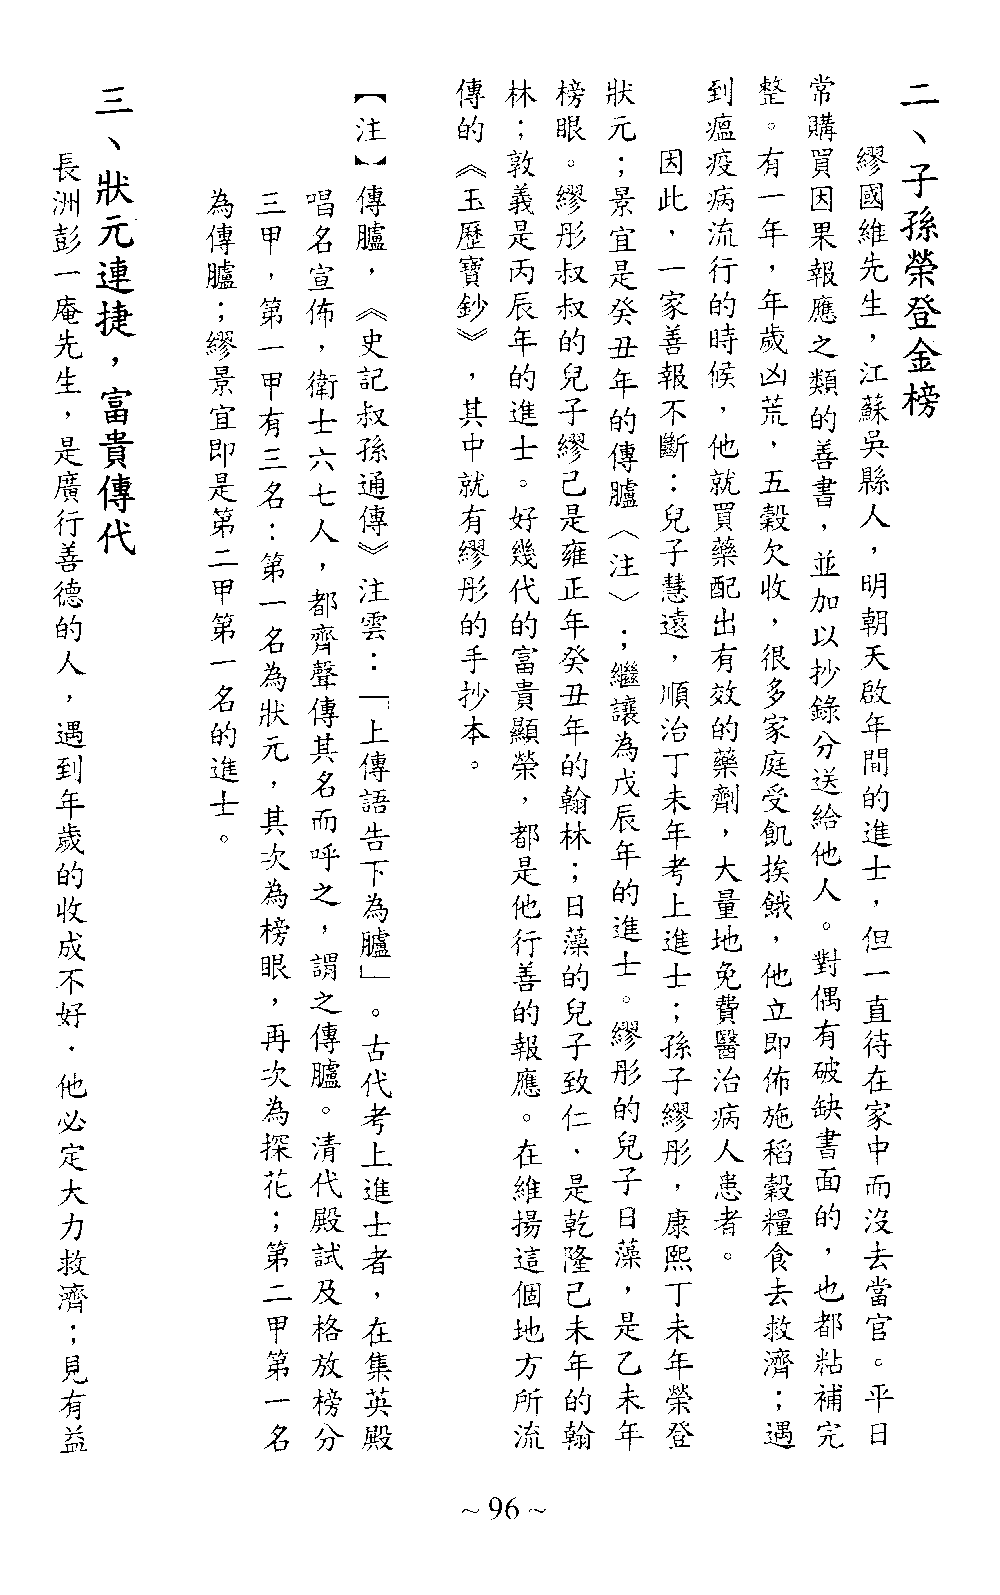 二、子孫榮登金榜
繆國維先生，江蘇吳縣人，明朝天啟年間的進士，但一直待在家中而沒去當官。平日
常購買因果報應之類的善書，並加以抄錄分送給他人。對偶有破缺書面的，也都粘補完
整。有一年，年歲凶荒，五穀欠收，很多家庭受飢挨餓，他立即佈施稻穀糧食去救濟；遇
到瘟疫病流行的時候，他就買藥配出有效的藥劑，大量地免費醫治病人患者。
因此，一家善報不斷：兒子慧遠，順治丁未年考上進士；孫子繆彤，康熙丁未年榮登
狀元；景宜是癸丑年的傳臚〈注〉；繼讓為戊辰年的進士。繆彤的兒子日藻，是乙未年
榜眼。繆彤叔叔的兒子繆己是雍正年癸丑年的翰林；日藻的兒子致仁．是乾隆己未年的翰
林；敦義是丙辰年的進士。好幾代的富貴顯榮，都是他行善的報應。在維揚這個地方所流
傳的《玉歷寶鈔》，其中就有繆彤的手抄本。
【注】傳臚，《史記叔孫通傳》注雲：「上傳語告下為臚」。古代考上進士者，在集英殿
唱名宣佈，衛士六七人，都齊聲傳其名而呼之，謂之傳臚。清代殿試及格放榜分
三甲，第一甲有三名：第一名為狀元，其次為榜眼，再次為探花；第二甲第一名
為傳臚；繆景宜即是第二甲第一名的進士。
三、狀元連捷，富貴傳代
長洲彭一庵先生，是廣行善德的人，遇到年歲的收成不好．他必定大力救濟；見有益
~96~